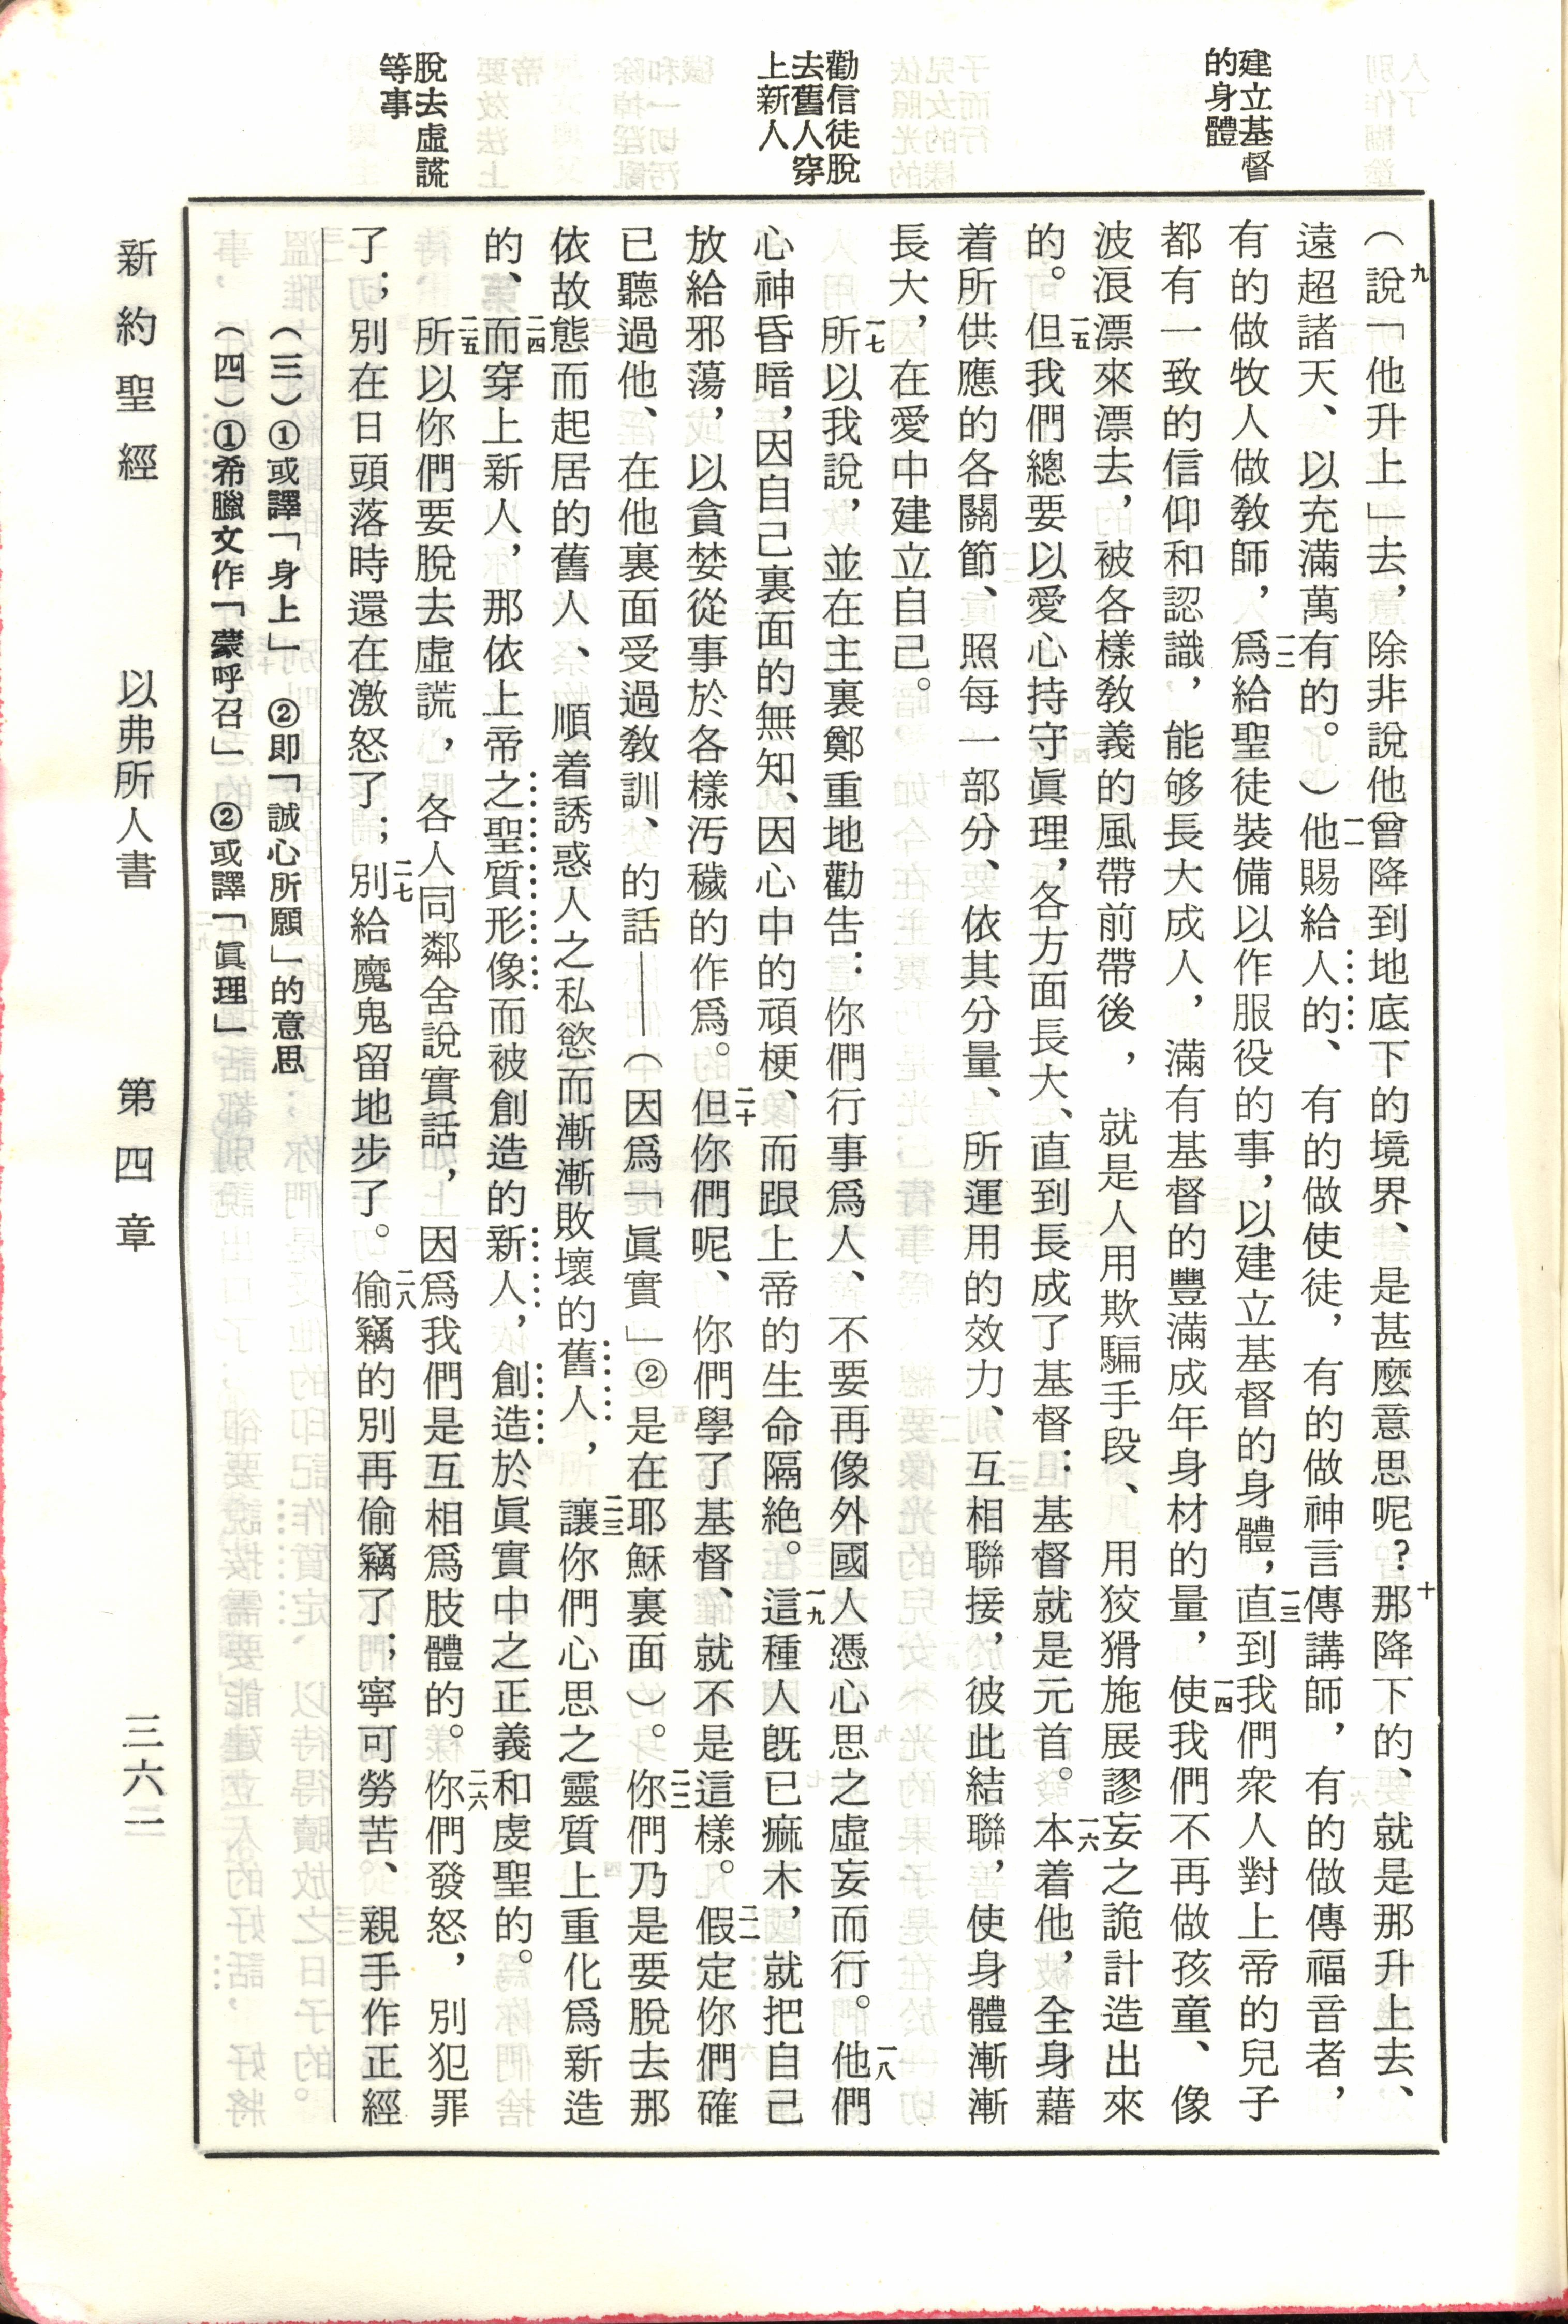 建立基督
的身體
勸信徒脫
去舊人穿
上新人
脫去虛謊
等事
（九說「他升上」去，除非說他曾降到地底下的境界、是甚麼意思呢？十那降下的、就是那升上去、
遠超諸天、以充滿萬有的。）一一他賜給人的、有的做使徒，有的做神言傳講師，有的做傳福音者，
有的做牧人做敎師，一二爲給聖徒裝備以作服役的事，以建立基督的身體，一三直到我們衆人對上帝的兒子
都有一致的信仰和認識，能够長大成人，滿有基督的豐滿成年身材的量，一四使我們不再做孩童、像
波浪漂來漂去，被各樣敎義的風帶前帶後，就是人用欺騙手段、用狡猾施展謬妄之詭計造出來
的。一五但我們總要以愛心持守眞理，各方面長大、直到長成了基督：基督就是元首。一六本着他，全身藉
着所供應的各關節、照每一部分、依其分量、所運用的效力、互相聯接，彼此結聯，使身體漸漸
長大，在愛中建立自己。
一七所以我說，並在主裏鄭重地勸告：你們行事爲人、不要再像外國人憑心思之虛妄而行。一八他們
心神昏暗，因自己裏面的無知、因心中的頑梗、而跟上帝的生命隔絕。一九這種人旣已痲木，就把自己
放給邪蕩，以貪婪從事於各樣汚穢的作爲。二十但你們呢、你們學了基督、就不是這樣。二一假定你們確
已聽過他、在他裏面受過敎訓、的話——（因爲「眞實」②是在耶穌裏面）。二二你們乃是要脫去那
依故態而起居的舊人、順着誘惑人之私慾而漸漸敗壞的舊人，二三讓你們心思之靈質上重化爲新造
的、二四而穿上新人，那依上帝之聖質形像而被創造的新人，創造於眞實中之正義和虔聖的。
二五所以你們要脫去虛謊，各人同鄰舍說實話，因爲我們是互相爲肢體的。二六你們發怒，別犯罪
了；別在日頭落時還在激怒了；二七別給魔鬼留地步了。二八偷竊的別再偷竊了；寧可勞苦、親手作正經
（三）①或譯「身上」 ②即「誠心所願」的意思
（四）①希臘文作「蒙呼召」 ②或譯「眞理」
新約聖經 以弗所人書 第四章 三六二